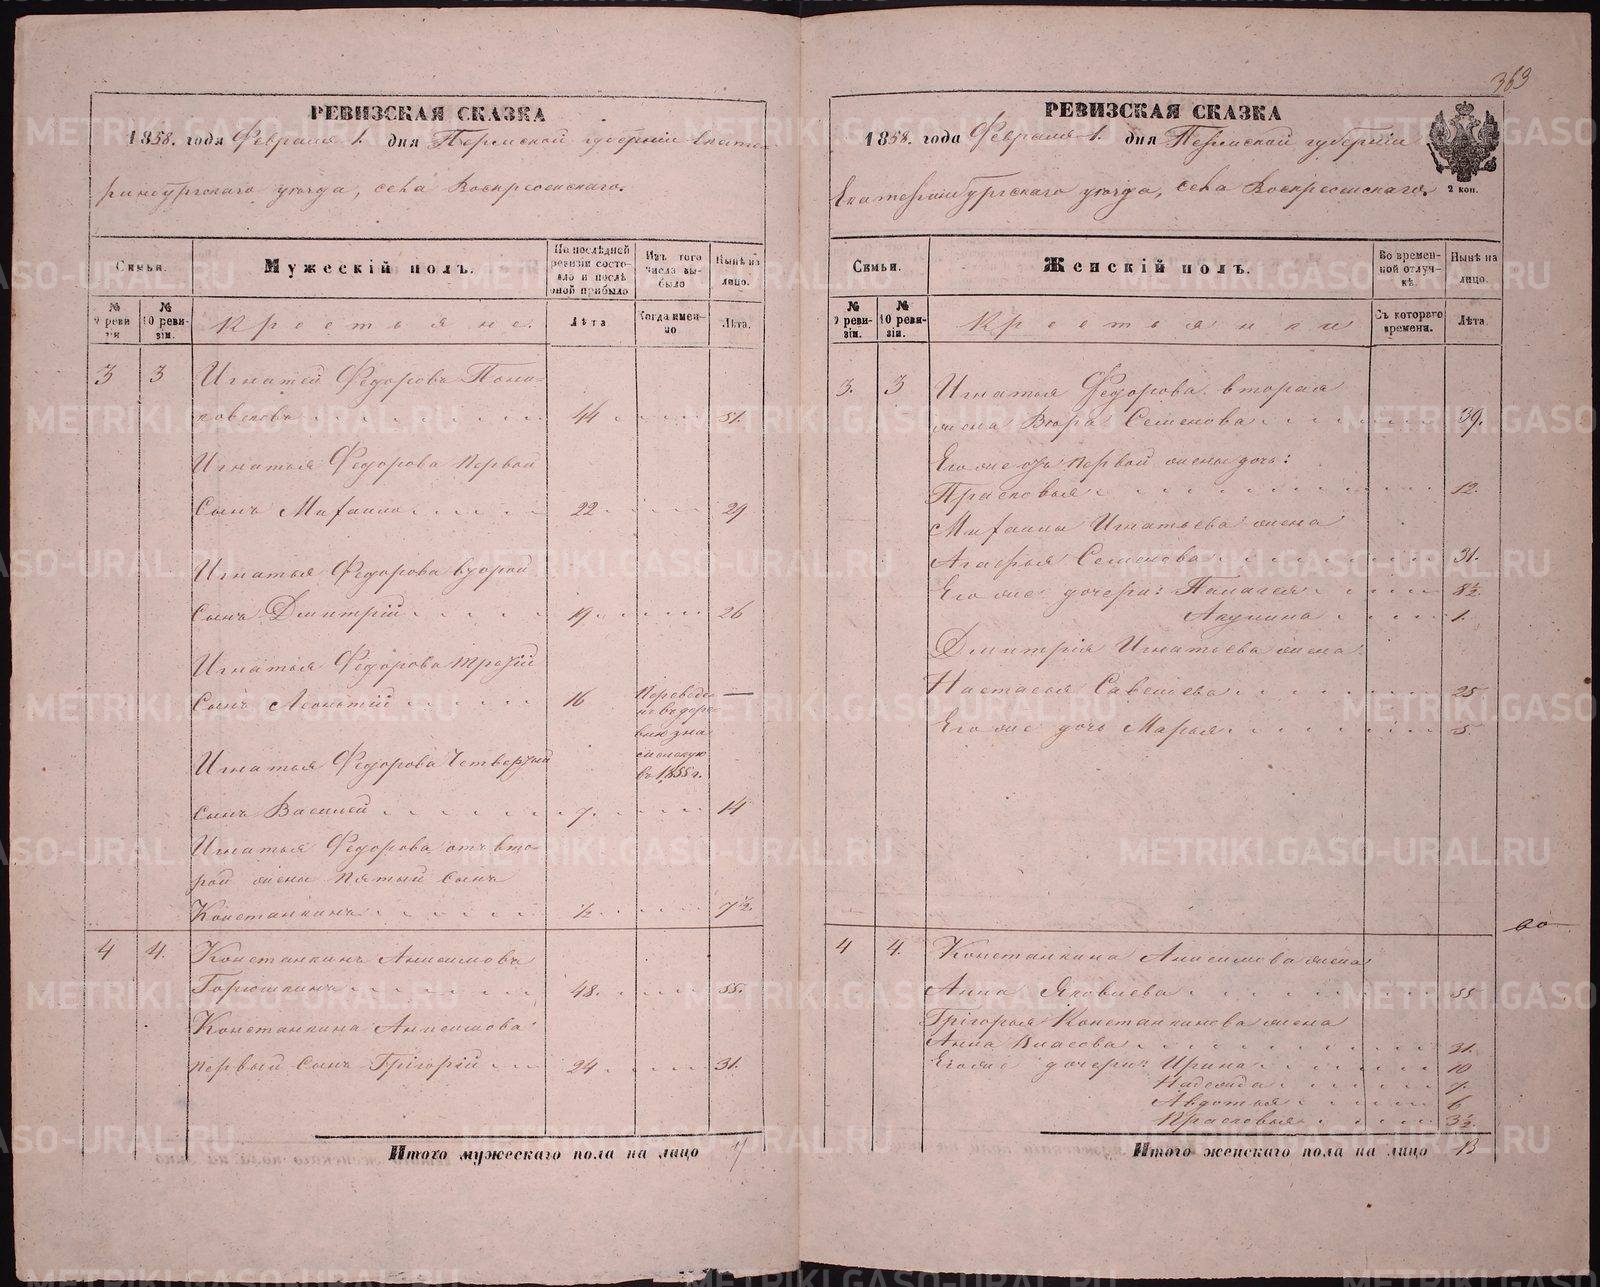 РЕВИЗСКАЯ СКАЗКА
1858. года Февраля 1. дня Пермской губернiи Екате
ринбургскаго уѣзда, села Воскресенскаго.
Семьи.
Мужескiй полъ.
На послѣдней ревизiи состояло и послѣ оной прибыло
Изъ того числа выбыло
Нынѣ на лицо.
№ 9 ревизiи
№ 10 ревизiи.
Крестьяне.
Лѣта
Когда именно
Лѣта.
3 3 Игнатей Федоровъ Пона-
44 51.
Игнатья Федорова первой
сынъ Михаило 22 29
Игнатья Федорова второй
сынъ Дмитрiй 19 26
Игнатья Федорова третiй
сынъ Леонтiй 16 Переведе- —
въ 1855 г.
Игнатья Федорова четвертый
сынъ Василей 7. 14
Игнатья Федорова отъ вто-
рой жены пятый сынъ
Константинъ 1/2 7 1/2.
4 4. Константинъ Анисимовъ
Горюшкинъ 48. 55.
Константина Анисимова
первый сынъ Григорiй 24 31.
Итого мужескаго пола на лицо 7
363
РЕВИЗСКАЯ СКАЗКА
1858. года Февраля 1. дня Пермской губернiи
Екатеринбургскаго уѣзда, села Воскресенскаго.
2 коп.
Семьи.
Женскiй полъ.
Во временной отлучкѣ.
Нынѣ на лицо.
№ 9 ревизiи.
№ 10 ревизiи.
Крестьянки
Съ котораго времени.
Лѣта
3. 3 Игнатья Федорова вторая
жена Вѣра Семенова 39.
Его же отъ первой жены дочь:
Прасковья 12.
Михаилы Игнатьева жена
Агафья Семенова 31.
Его же дочери: Палагея 8 1/2.
Акулина 1.
Дмитрiя Игнатьева жена
Настасья Савельева 25
Его же дочь Марья 5.
4 4. Константина Анисимова жена
Анна Яковлева 55
Григорья Константинова жена
Анна Власова 31.
Его же дочери: Ирина 10
Надежда 7.
Авдотья 6
Прасковья 3 1/2.
Итого женскаго пола на лицо 13
METRIKI.GASO-URAL.RU